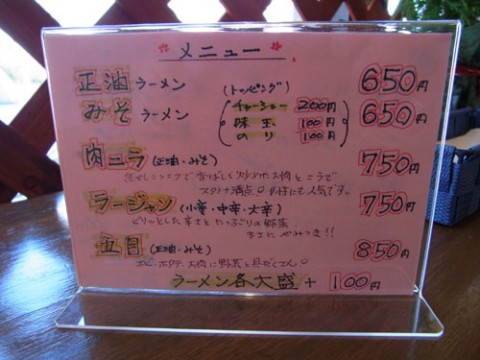 メニュー
正油ラーメン (トッピング) 650円
みそラーメン チャーシュー 200円 650円
味玉 100円
のり 100円
肉ニラ (正油・みそ) 750円
焦がしニンニクで香ばしく炒めたお肉とニラで
スタミナ満点
ラージャン (小辛・中辛・大辛) 750円
ピリッとした辛さとたっぷりの野菜
まさにやみつき!!
五目 (正油・みそ) 850円
エビ・ホタテ・お肉に野菜と具だくさん
ラーメン各大盛 + 100円